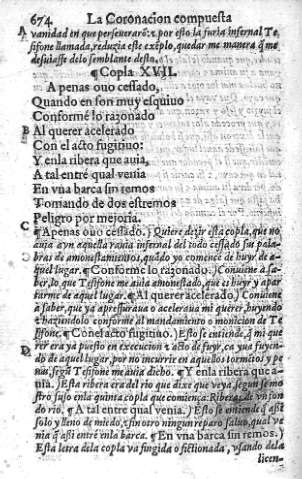 674. La Coronacion compuesta
A vanidad en que perseueraro: z por esto la furia infernal Te
sifone llamada, reduzia este exēplo, quedar me manera q̄ me
desuiasse delo semblante desta.
¶Copla XVII.
A penas ouo cessado,
Quando en son muy esquiuo
Conforme lo razonado
B Al querer acelerado
Con el acto fugitiuo:
Y enla ribera que auia,
A tal entre qual venia
En vna barca sin remos
Tomando de dos estremos
Peligro por mejoria.
C ¶A penas ouo cessado.) Quiere dezir esta copla, que no
auia ayn aquella rauia infernal del todo cessado sus pala-
bras de amonestamientos, quādo yo comence de huyr de a-
quel lugar. ¶Conforme lo razonado.) Conuiene a sa-
ber, lo que Tesifone me auia amonestado, que es huyr y apar
tarme de aquel lugar. ¶Al querer acelerado) Conuiene
a saber, que ya apressuraua o aceleraua mi querer huyendo
z haziendolo conforme al mandamiento o monicion de Te
sifone. ¶Con el acto fugitiuo.) Esto se entiende, q̄ mi que
D rer era ya puesto en execucion z acto de fuyr, ca yua fuyen-
do de aquel lugar, por no incurrir en aquellos tormētos y pe
nas, segū Tesifone me auia dicho. ¶Y enla ribera que a-
uia.) Esta ribera era del rio que dixe que veya, segun se mo
stro suso enla quinta copla que comiença: Riberas de vn son
do rio. ¶A tal entre qual venia.) Esto se entiende q̄ assi
solo y lleno de miedo, z sin otro ningun reparo salud, qual ve
nia q̄ assi entre enla barca. ¶En vna barca sin remos.)
Esta letra dela copla va fingida o fictionada, vsando dela
licen-